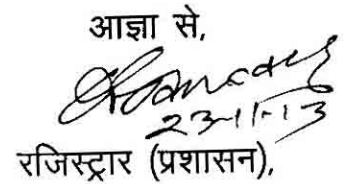 आज्ञा से,
23-11-13
रजिस्ट्रार (प्रशासन),